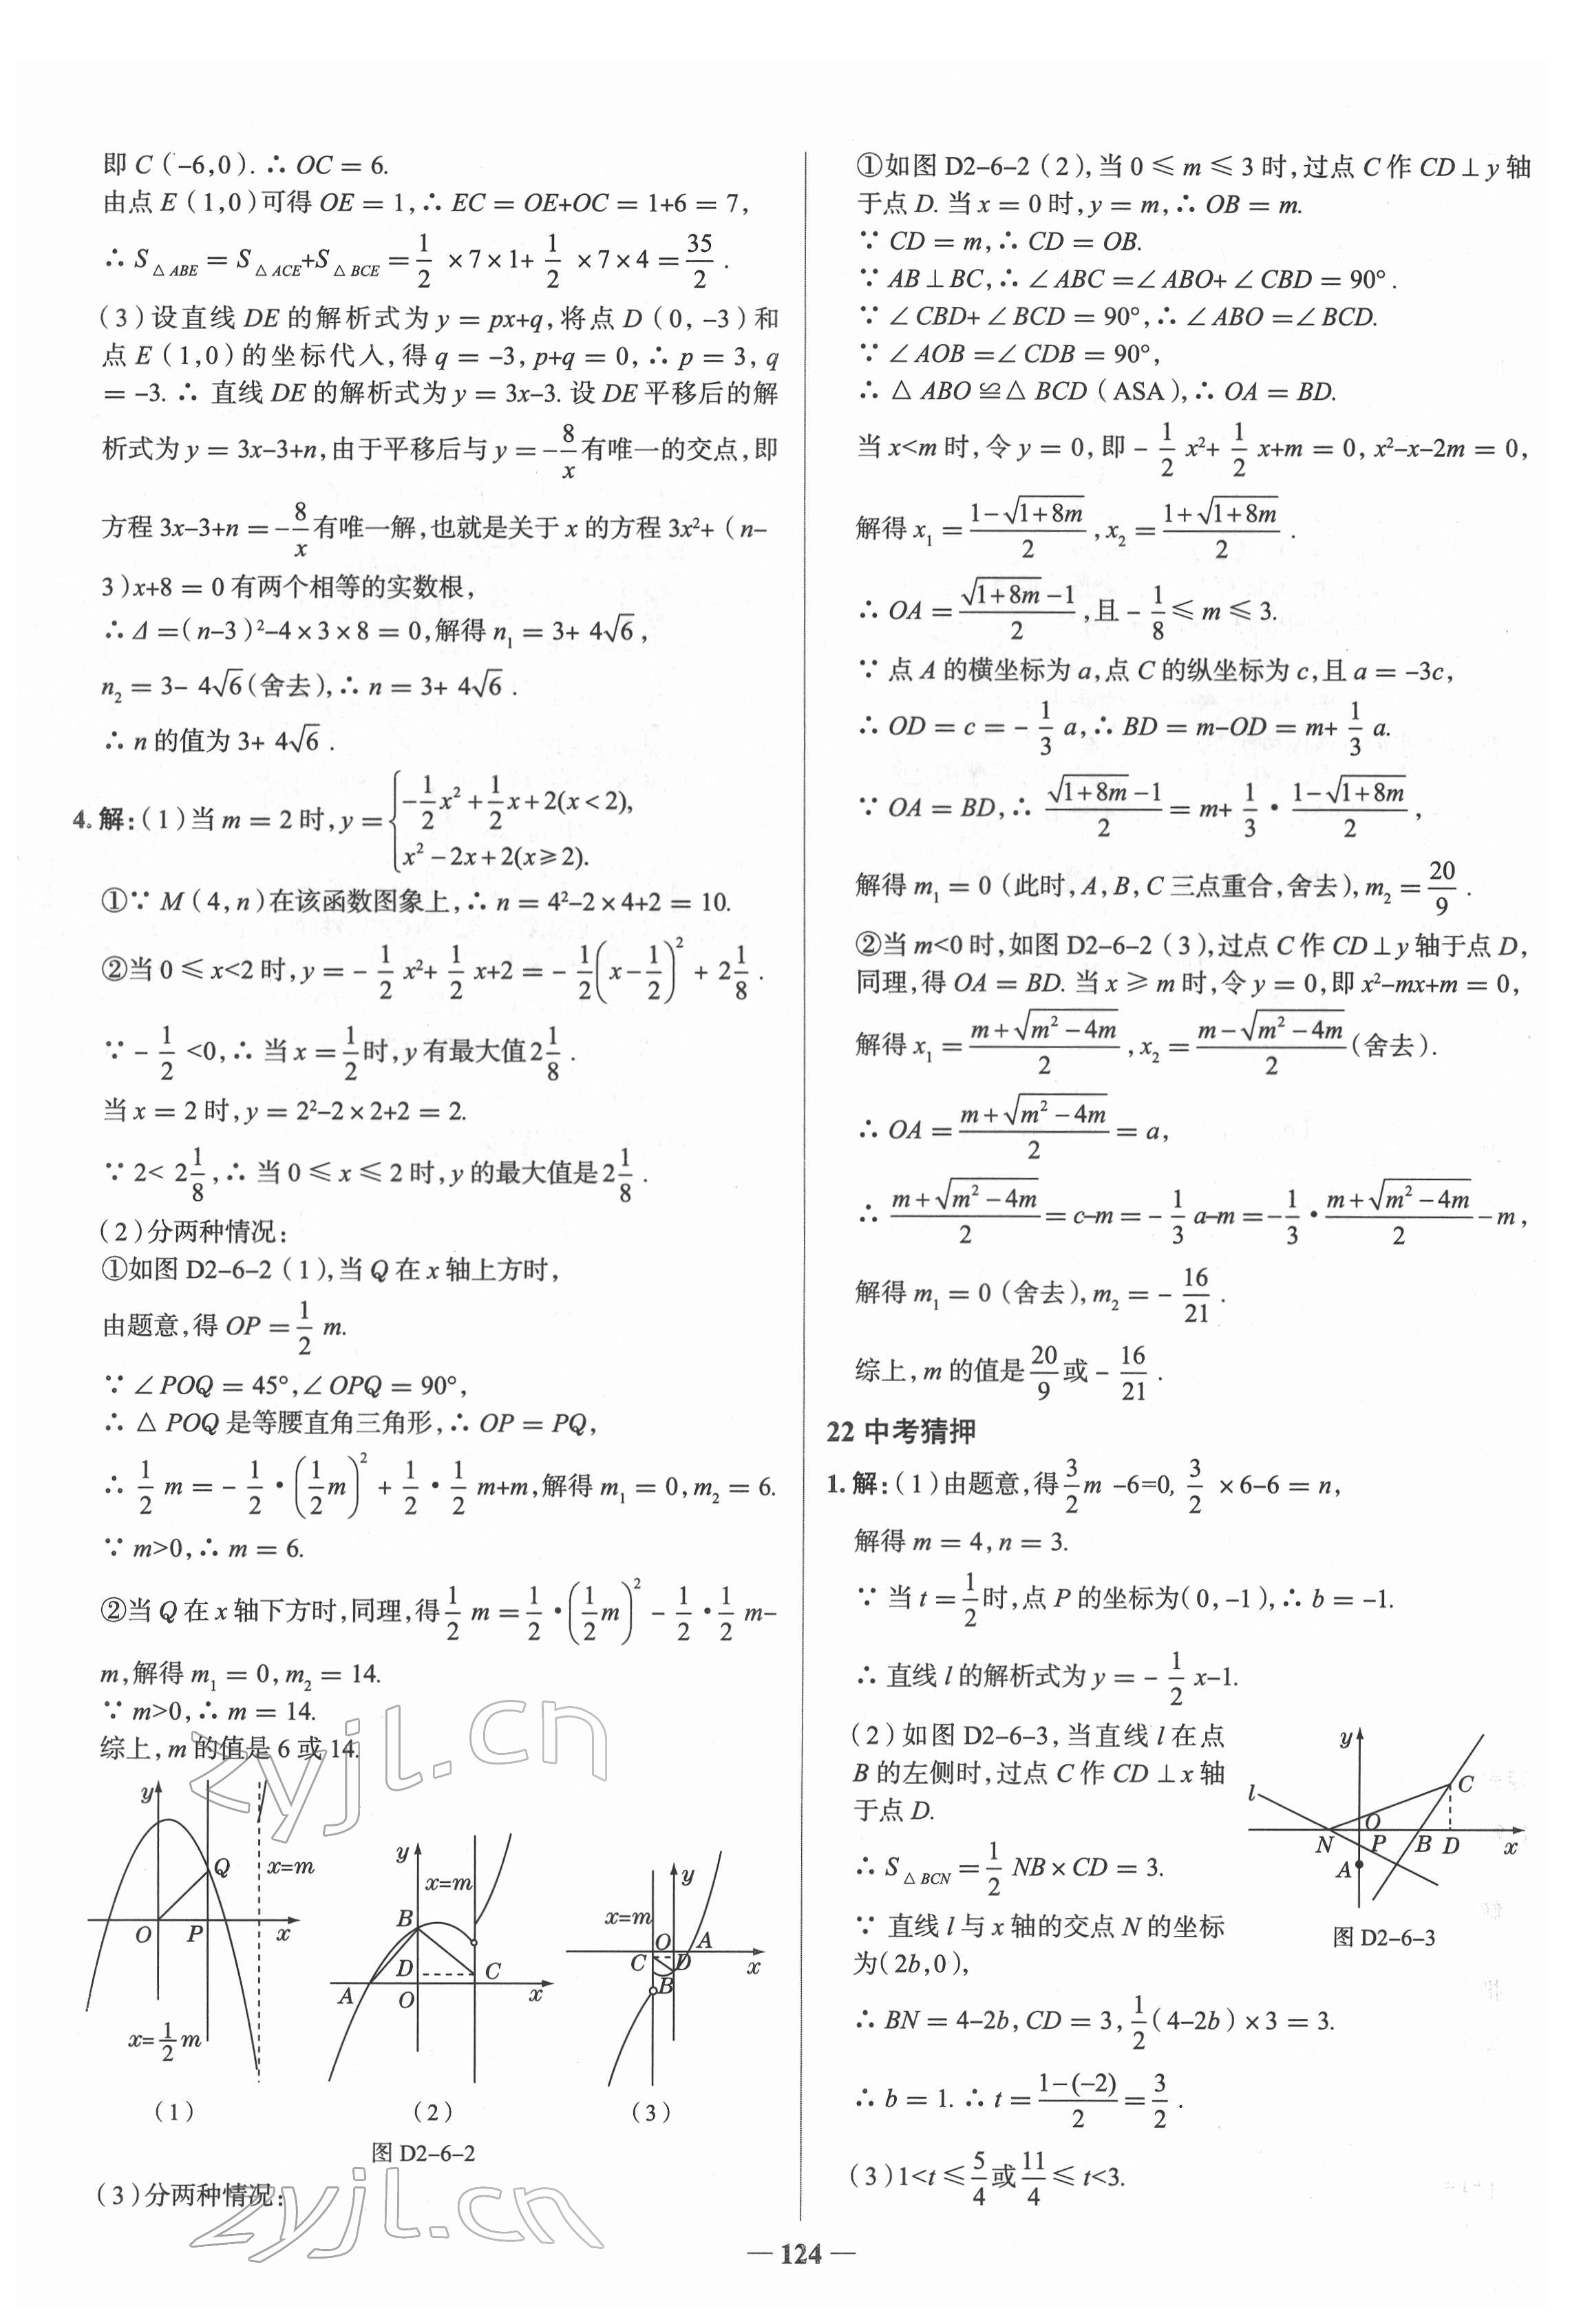 即 C (-6,0). ∴ OC = 6.
由点 E (1,0)可得 OE = 1,∴ EC = OE+OC = 1+6 = 7,
∴ S△ABE = S△ACE+S△BCE = 1/2 ×7×1+ 1/2 ×7×4 = 35/2 .
(3)设直线 DE 的解析式为 y = px+q,将点 D (0, -3)和
点 E (1,0)的坐标代入,得 q = -3, p+q = 0, ∴ p = 3, q
= -3. ∴ 直线 DE 的解析式为 y = 3x-3. 设 DE 平移后的解
析式为 y = 3x-3+n,由于平移后与 y = -8/x 有唯一的交点,即
方程 3x-3+n = -8/x 有唯一解,也就是关于 x 的方程 3x²+ (n-
3)x+8 = 0 有两个相等的实数根,
∴ Δ =(n-3)²-4×3×8 = 0,解得 n₁ = 3+ 4√6 ,
n₂ = 3- 4√6(舍去),∴ n = 3+ 4√6 .
∴ n 的值为 3+ 4√6 .
4. 解:(1)当 m = 2 时, y = { -1/2 x² + 1/2 x + 2(x < 2),
x² - 2x + 2(x ≥ 2).
①∵ M (4, n)在该函数图象上,∴ n = 4²-2×4+2 = 10.
②当 0 ≤ x<2 时, y = - 1/2 x²+ 1/2 x+2 = - 1/2 (x - 1/2)² + 2 1/8 .
∵ - 1/2 <0,∴ 当 x = 1/2 时, y 有最大值 2 1/8 .
当 x = 2 时, y = 2²-2×2+2 = 2.
∵ 2< 2 1/8 ,∴ 当 0 ≤ x ≤ 2 时, y 的最大值是 2 1/8 .
(2)分两种情况:
①如图 D2-6-2 (1),当 Q 在 x 轴上方时,
由题意,得 OP = 1/2 m.
∵ ∠POQ = 45°,∠OPQ = 90°,
∴ △ POQ 是等腰直角三角形,∴ OP = PQ,
∴ 1/2 m = - 1/2 · (1/2 m)² + 1/2 · 1/2 m+m,解得 m₁ = 0, m₂ = 6.
∵ m>0,∴ m = 6.
②当 Q 在 x 轴下方时,同理,得 1/2 m = 1/2 · (1/2 m)² - 1/2 · 1/2 m-
m,解得 m₁ = 0, m₂ = 14.
∵ m>0,∴ m = 14.
综上, m 的值是 6 或 14.
y
Q
x=m
O
P
x
x=1/2 m
(1)
y
x=m
B
D
C
A
O
x
(2)
y
x=m
O
A
C
D
x
B
(3)
图 D2-6-2
(3)分两种情况:
①如图 D2-6-2 (2),当 0 ≤ m ≤ 3 时,过点 C 作 CD⊥y 轴
于点 D. 当 x = 0 时, y = m,∴ OB = m.
∵ CD = m,∴ CD = OB.
∵ AB⊥BC,∴ ∠ABC =∠ABO+∠CBD = 90° .
∵ ∠CBD+∠BCD = 90°,∴ ∠ABO =∠BCD.
∵ ∠AOB =∠CDB = 90°,
∴ △ ABO ≌△ BCD (ASA),∴ OA = BD.
当 x<m 时,令 y = 0,即 - 1/2 x²+ 1/2 x+m = 0, x²-x-2m = 0,
解得 x₁ = (1-√(1+8m))/2 , x₂ = (1+√(1+8m))/2 .
∴ OA = (√(1+8m) -1)/2 ,且 - 1/8 ≤ m ≤ 3.
∵ 点 A 的横坐标为 a,点 C 的纵坐标为 c,且 a = -3c,
∴ OD = c = - 1/3 a,∴ BD = m-OD = m+ 1/3 a.
∵ OA = BD,∴ (√(1+8m) -1)/2 = m+ 1/3 · (1-√(1+8m))/2 ,
解得 m₁ = 0 (此时, A, B, C 三点重合,舍去), m₂ = 20/9 .
②当 m<0 时,如图 D2-6-2 (3),过点 C 作 CD⊥y 轴于点 D,
同理,得 OA = BD. 当 x ≥ m 时,令 y = 0,即 x²-mx+m = 0,
解得 x₁ = (m+√(m² - 4m))/2 , x₂ = (m-√(m² - 4m))/2 (舍去).
∴ OA = (m+√(m² - 4m))/2 = a,
∴ (m+√(m² - 4m))/2 = c-m = - 1/3 a-m = - 1/3 · (m+√(m² - 4m))/2 - m ,
解得 m₁ = 0 (舍去), m₂ = - 16/21 .
综上, m 的值是 20/9 或 - 16/21 .
22 中考猜押
1. 解:(1)由题意,得 3/2 m -6=0, 3/2 ×6-6 = n,
解得 m = 4, n = 3.
∵ 当 t = 1/2 时,点 P 的坐标为(0, -1),∴ b = -1.
∴ 直线 l 的解析式为 y = - 1/2 x-1.
(2)如图 D2-6-3,当直线 l 在点
B 的左侧时,过点 C 作 CD⊥x 轴
于点 D.
∴ S△BCN = 1/2 NB×CD = 3.
∵ 直线 l 与 x 轴的交点 N 的坐标
为(2b,0),
∴ BN = 4-2b, CD = 3, 1/2 (4-2b)×3 = 3.
∴ b = 1. ∴ t = (1-(-2))/2 = 3/2 .
(3)1<t ≤ 5/4 或 11/4 ≤ t<3.
y
l
C
O
N
P
B
D
x
A
图 D2-6-3
— 124 —
zyjl.cn
zyjl.cn